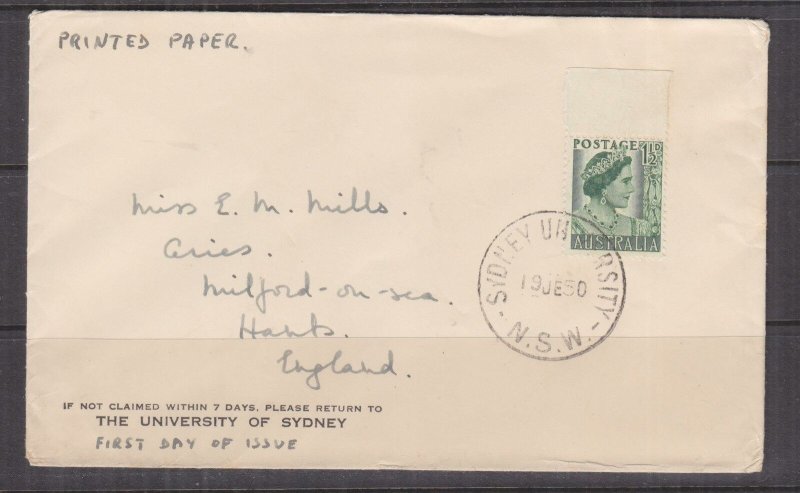 PRINTED PAPER.
POSTAGE
1½D
AUSTRALIA
SYDNEY UNIVERSITY
19JE50
N.S.W.
Miss E. M. Mills.
Aries.
Milford-on-sea.
Hants.
England.
IF NOT CLAIMED WITHIN 7 DAYS, PLEASE RETURN TO
THE UNIVERSITY OF SYDNEY
FIRST DAY OF ISSUE